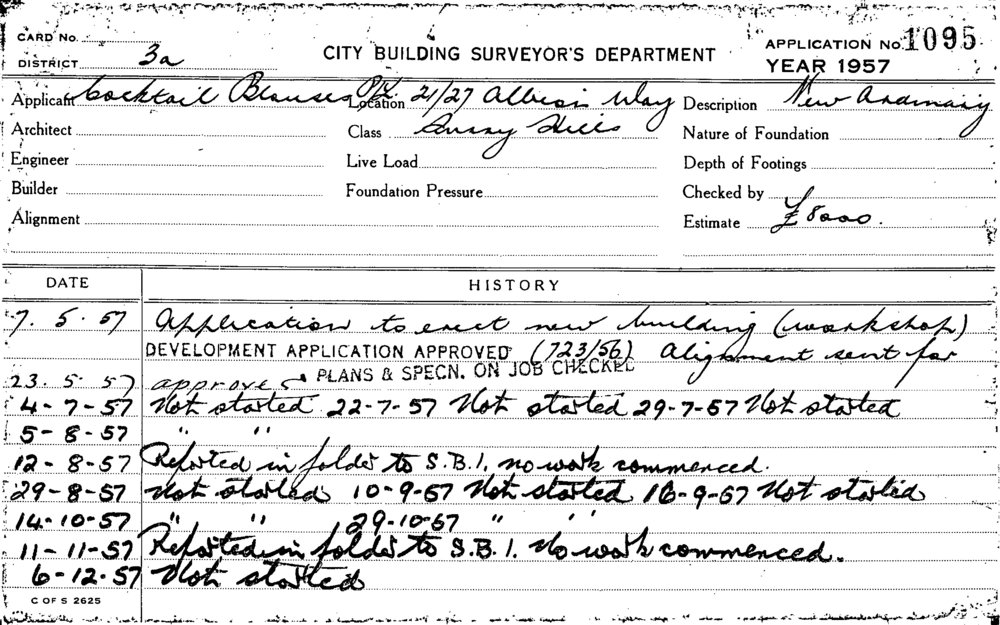 CARD No.
DISTRICT 3a
CITY BUILDING SURVEYOR'S DEPARTMENT
APPLICATION No. 1095
YEAR 1957
Applicant Cocktail Blouses P/L Location 21/27 Albion Way Description New
Architect Class Surry Hills Nature of Foundation
Engineer Live Load Depth of Footings
Builder Foundation Pressure Checked by
Alignment Estimate £8000.
DATE HISTORY
7. 5. 57 Application to erect new building (workshop)
DEVELOPMENT APPLICATION APPROVED (723/56) Alignment sent for
23. 5. 57 approved PLANS & SPECN. ON JOB CHECKED
4-7-57 Not started 22-7-57 Not started 29-7-57 Not started
5-8-57 " "
12-8-57 Reported in folder to S.B.I. no work commenced.
29-8-57 Not started 10-9-57 Not started 16-9-57 Not started
14-10-57 " " 29-10-57 " "
11-11-57 Reported in folder to S.B.I. No work commenced.
6-12-57 Not started
C OF S 2625